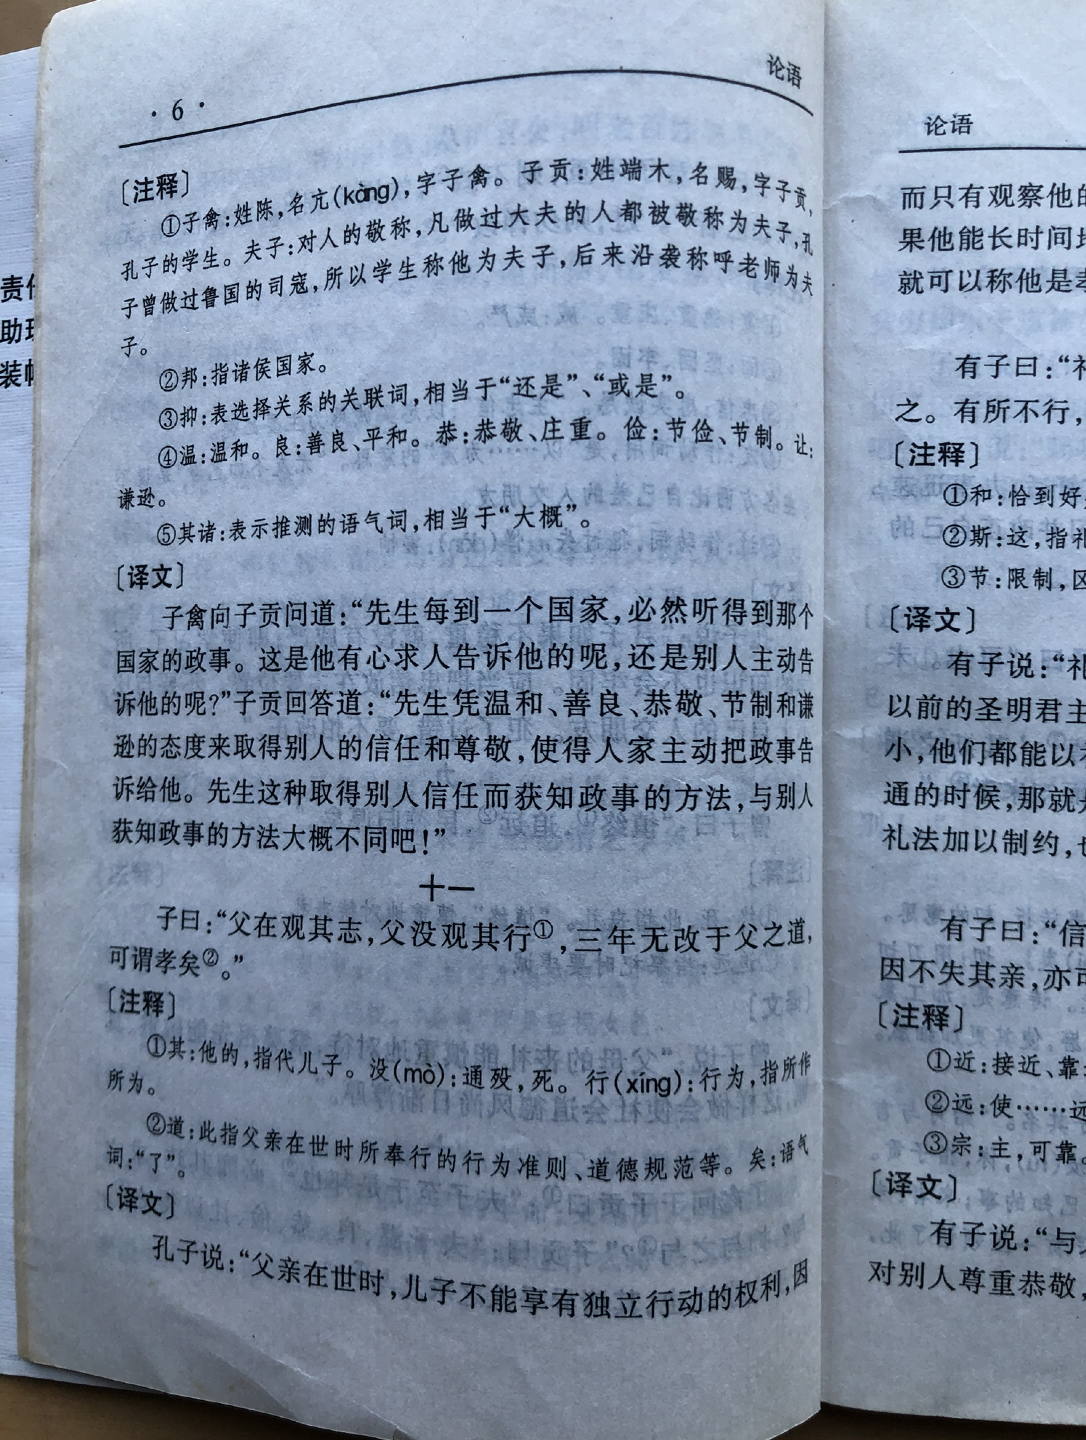 ·6·
论语
〔注释〕
①子禽:姓陈,名亢(kàng),字子禽。子贡:姓端木,名赐,字子贡,
孔子的学生。夫子:对人的敬称,凡做过大夫的人都被敬称为夫子,孔
子曾做过鲁国的司寇,所以学生称他为夫子,后来沿袭称呼老师为夫
子。
②邦:指诸侯国家。
③抑:表选择关系的关联词,相当于“还是”、“或是”。
④温:温和。良:善良、平和。恭:恭敬、庄重。俭:节俭、节制。让:
谦逊。
⑤其诸:表示推测的语气词,相当于“大概”。
〔译文〕
子禽向子贡问道:“先生每到一个国家,必然听得到那个
国家的政事。这是他有心求人告诉他的呢,还是别人主动告
诉他的呢?”子贡回答道:“先生凭温和、善良、恭敬、节制和谦
逊的态度来取得别人的信任和尊敬,使得人家主动把政事告
诉给他。先生这种取得别人信任而获知政事的方法,与别人
获知政事的方法大概不同吧!”
十一
子曰:“父在观其志,父没观其行①,三年无改于父之道,
可谓孝矣②。”
〔注释〕
①其:他的,指代儿子。没(mò):通殁,死。行(xíng):行为,指所作
所为。
②道:此指父亲在世时所奉行的行为准则、道德规范等。矣:语气
词:“了”。
〔译文〕
孔子说:“父亲在世时,儿子不能享有独立行动的权利,因
论语
而只有观察他的
果他能长时间地
就可以称他是孝
有子曰:“礼
之。有所不行,
〔注释〕
①和:恰到好
②斯:这,指礼
③节:限制,区
〔译文〕
有子说:“礼
以前的圣明君主
小,他们都能以礼
通的时候,那就是
礼法加以制约,也
有子曰:“信
因不失其亲,亦可
〔注释〕
①近:接近、靠近
②远:使……远
③宗:主,可靠。
〔译文〕
有子说:“与人
对别人尊重恭敬,
责任
助理
装帧